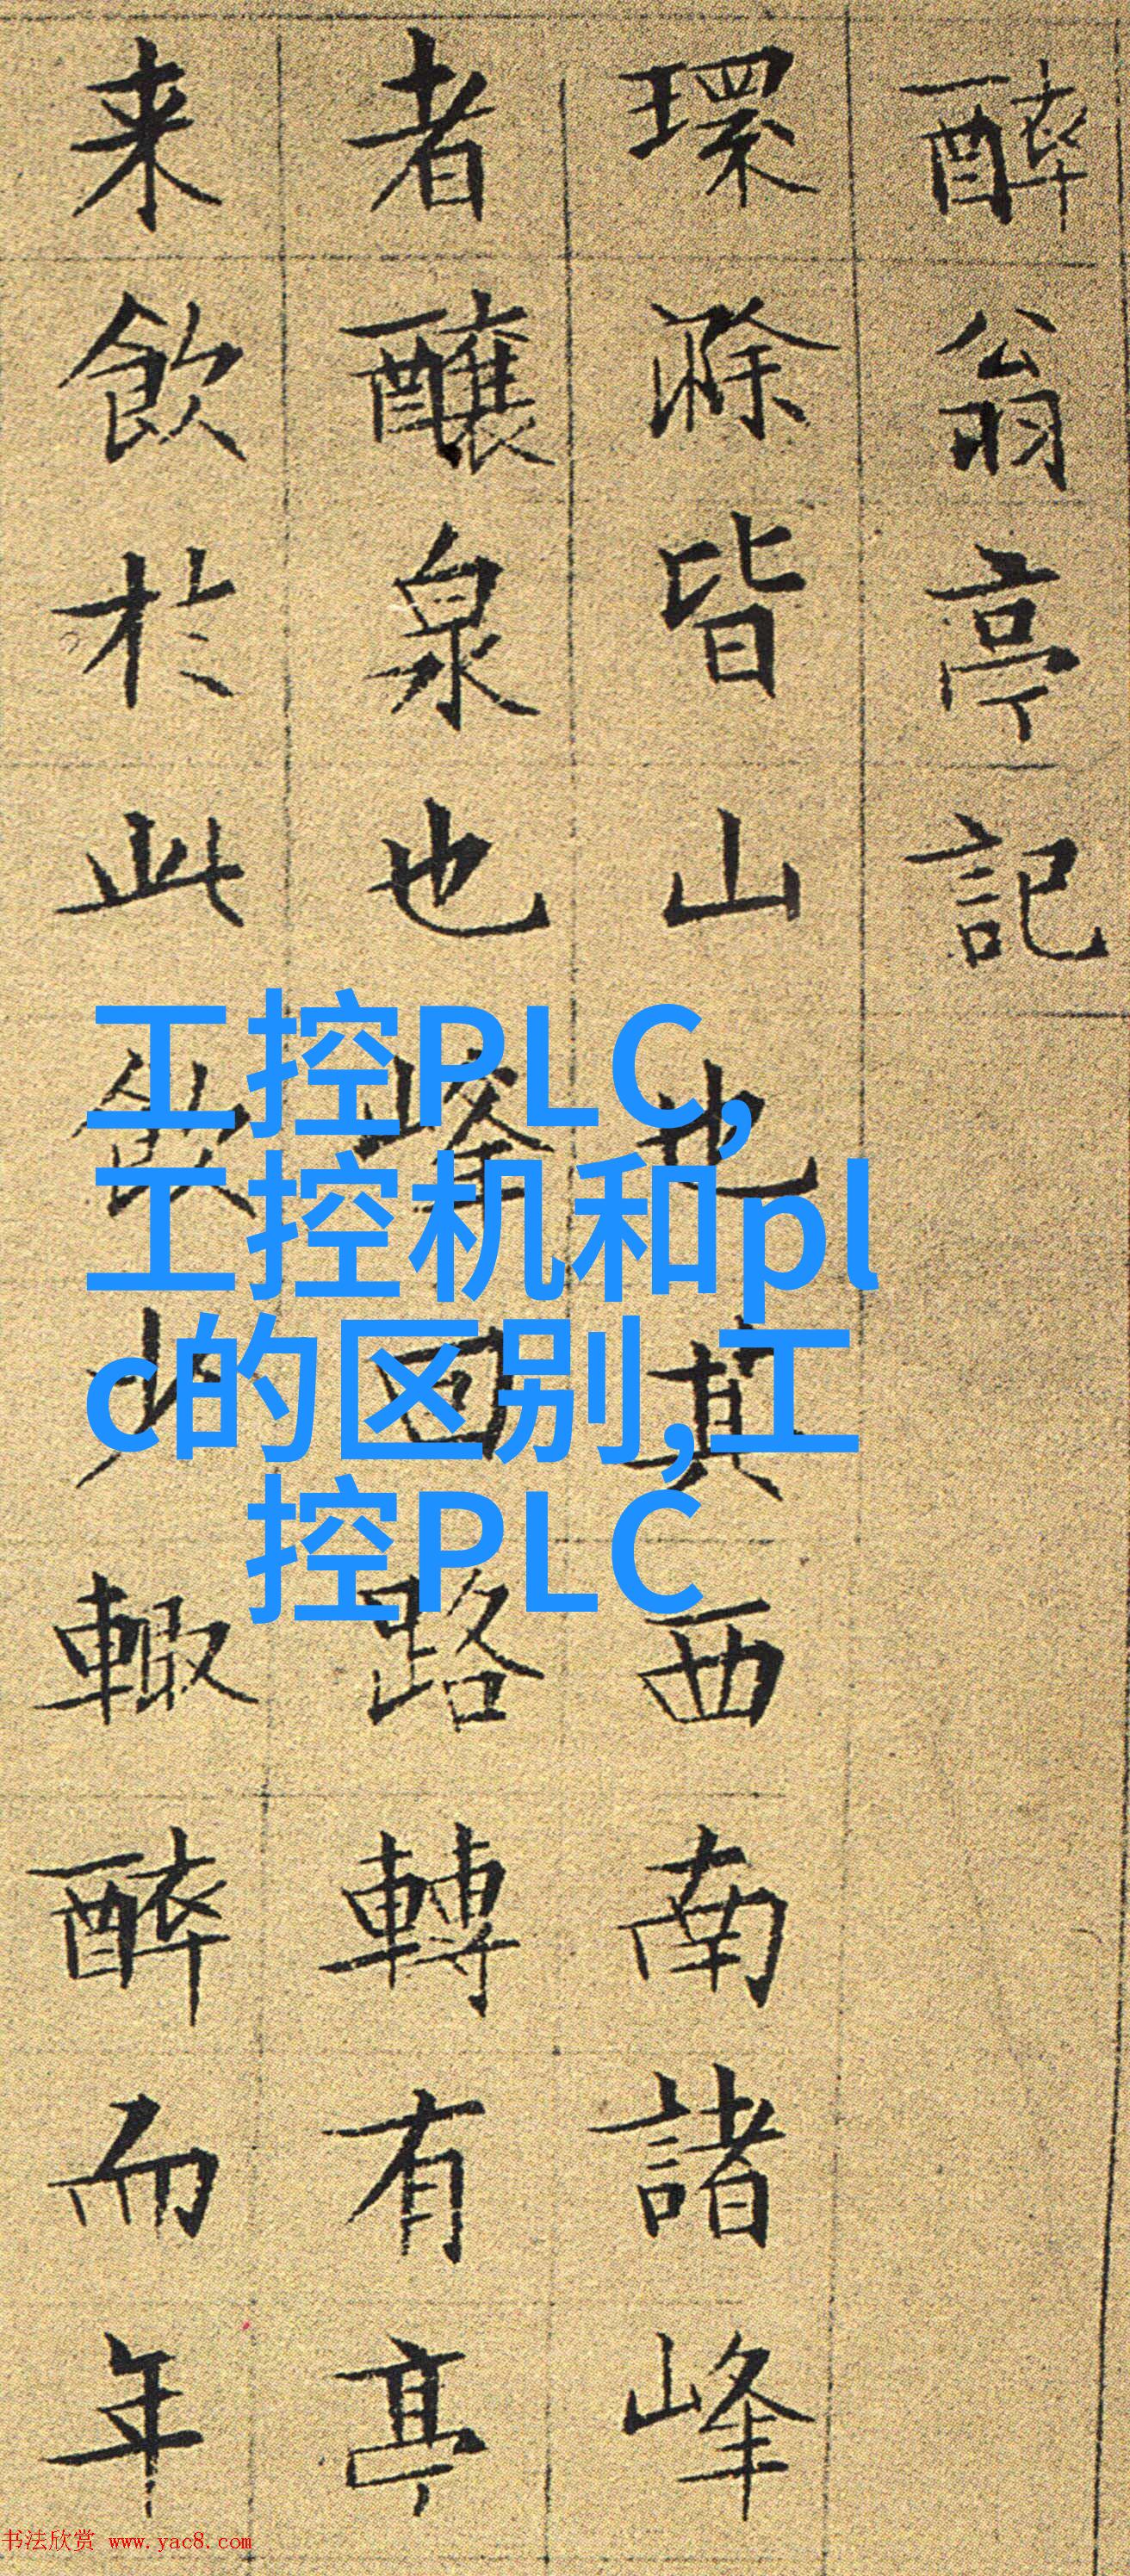 醉翁亭記
環滁皆山也其西南諸峰
者釀泉也峰回路轉有亭
来飲於此飲少輙醉而年
工控PLC,
工控机和pl
c的区别,工
控PLC
书法欣赏 www.yac8.com